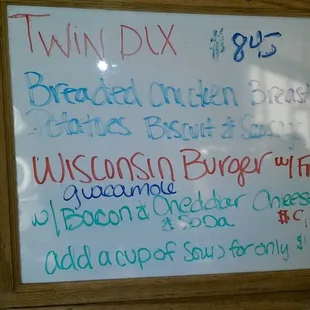 TWIN DLX $8.45
Breaded Chicken Breast
Potatoes Biscuit &
Wisconsin Burger w/
guacamole
w/Bacon & Cheddar Cheese
& Soda
add a cup of Soup for only $